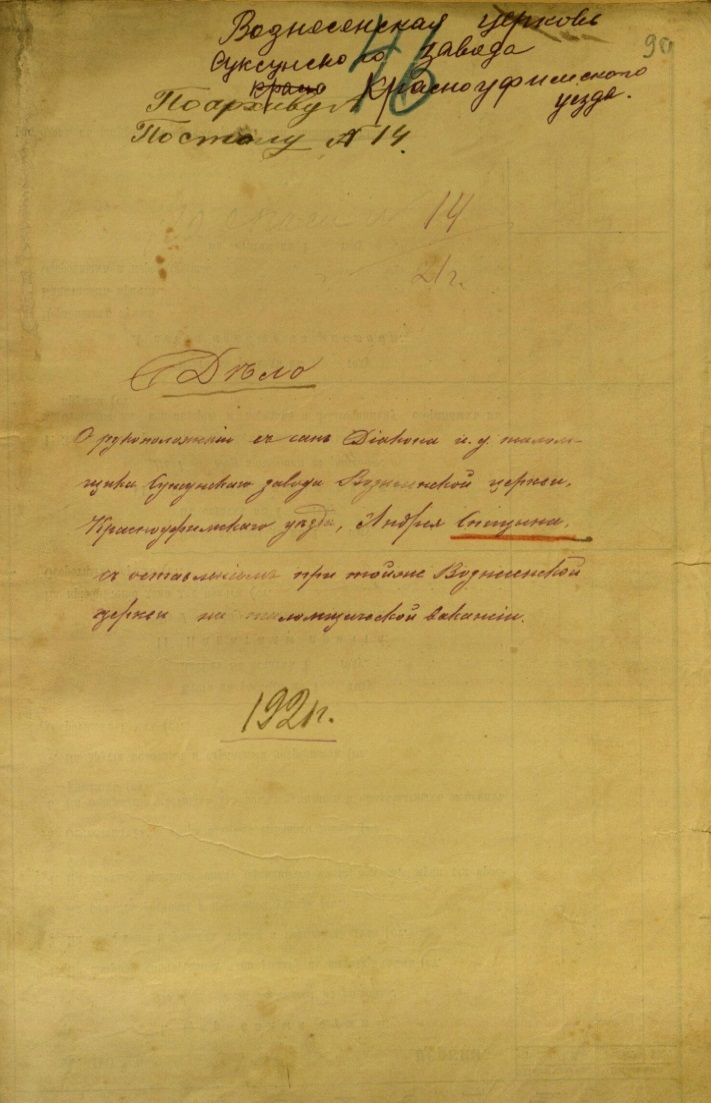 Вознесенская церковь
Суксунского завода
Красноуфимского
уезда.
90
46
По архиву №
По столу № 14.
14
21 г.
Дѣло
О рукоположеніи въ санъ Діакона и. д. псалом-
щика Суксунскаго завода Вознесенской церкви,
Красноуфимскаго уѣзда, Андрея
съ оставленіемъ при той же Вознесенской
церкви на псаломщической вакансіи.
1921 г.